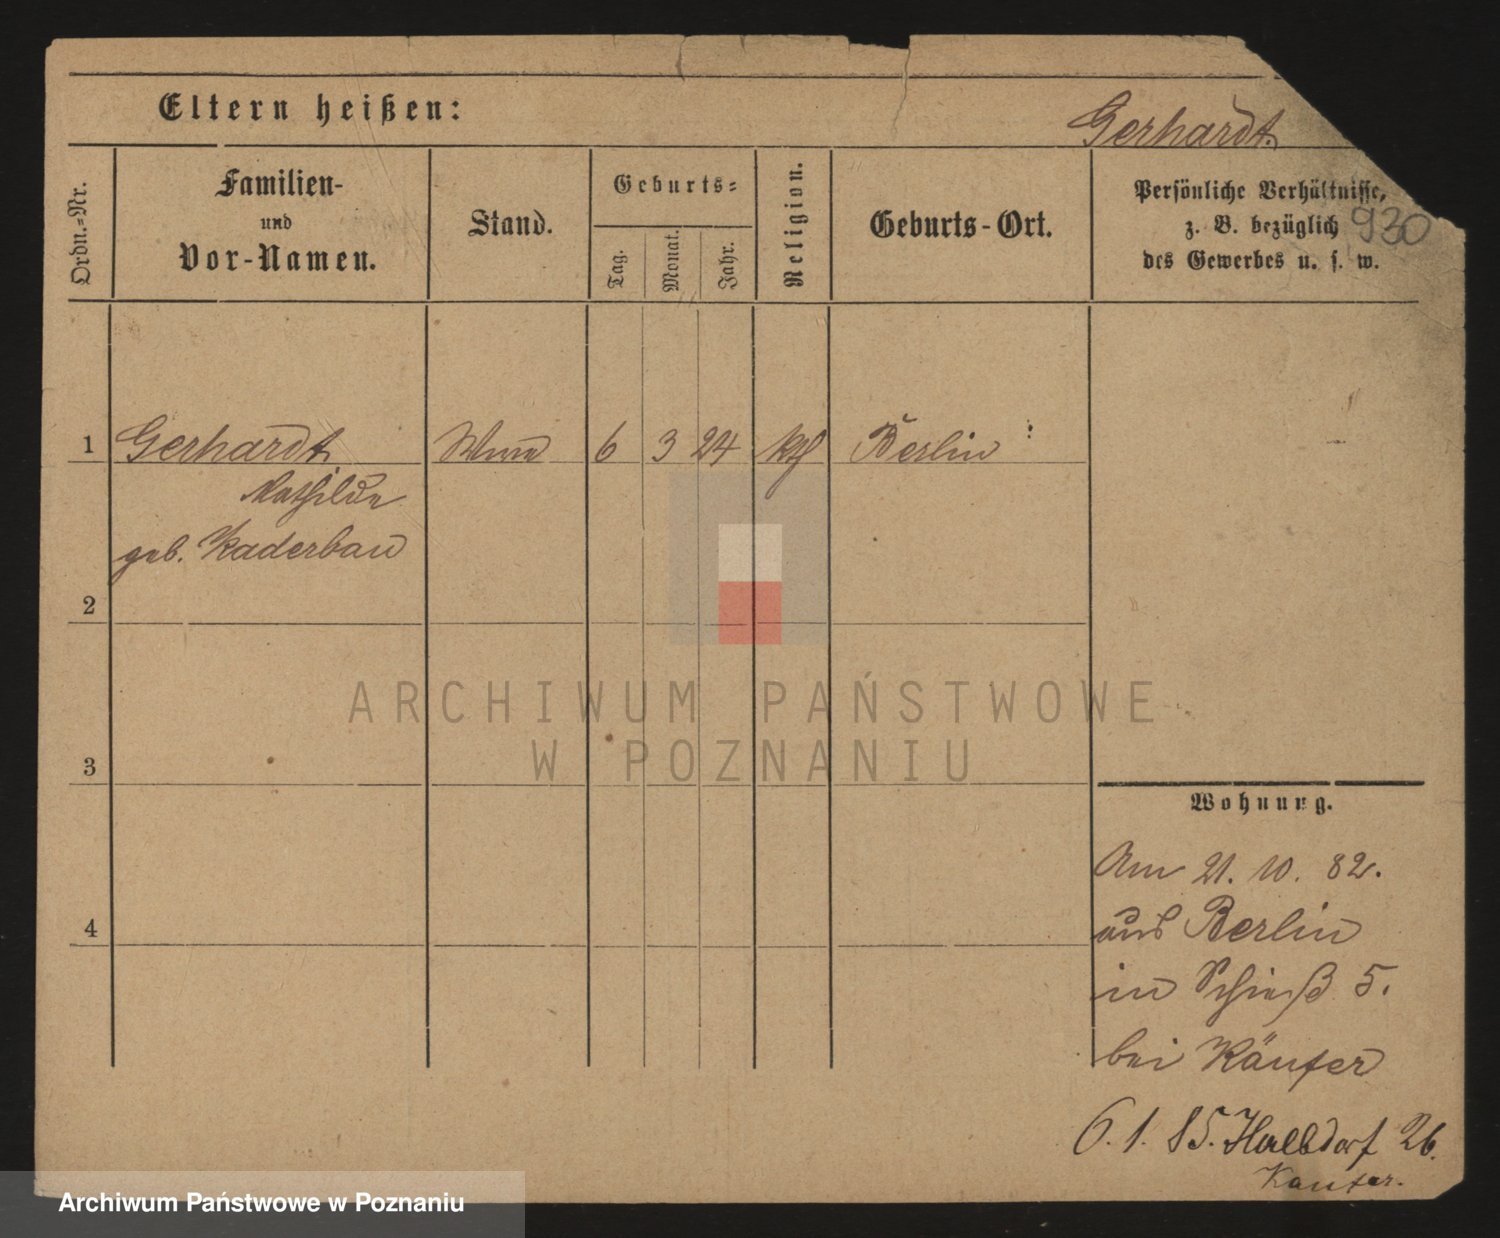 Eltern heißen:
Gerhardt.
Ordn.-Nr.
Familien-
und
Vor-Namen.
Stand.
Geburts-
Tag.
Monat.
Jahr.
Religion.
Geburts-Ort.
Persönliche Verhältnisse,
z. B. bezüglich
des Gewerbes u. s. w.
930
1 Gerhardt 6 3 24 kth Berlin
Mathilde
geb. Kaderbau
2
3
4
Wohnung.
Am 21. 10. 82.
aus Berlin
in Schieß 5.
bei Käufer
6. 1. 85. Halbdorf 26.
Kaufer.
ARCHIWUM PAŃSTWOWE
W POZNANIU
Archiwum Państwowe w Poznaniu